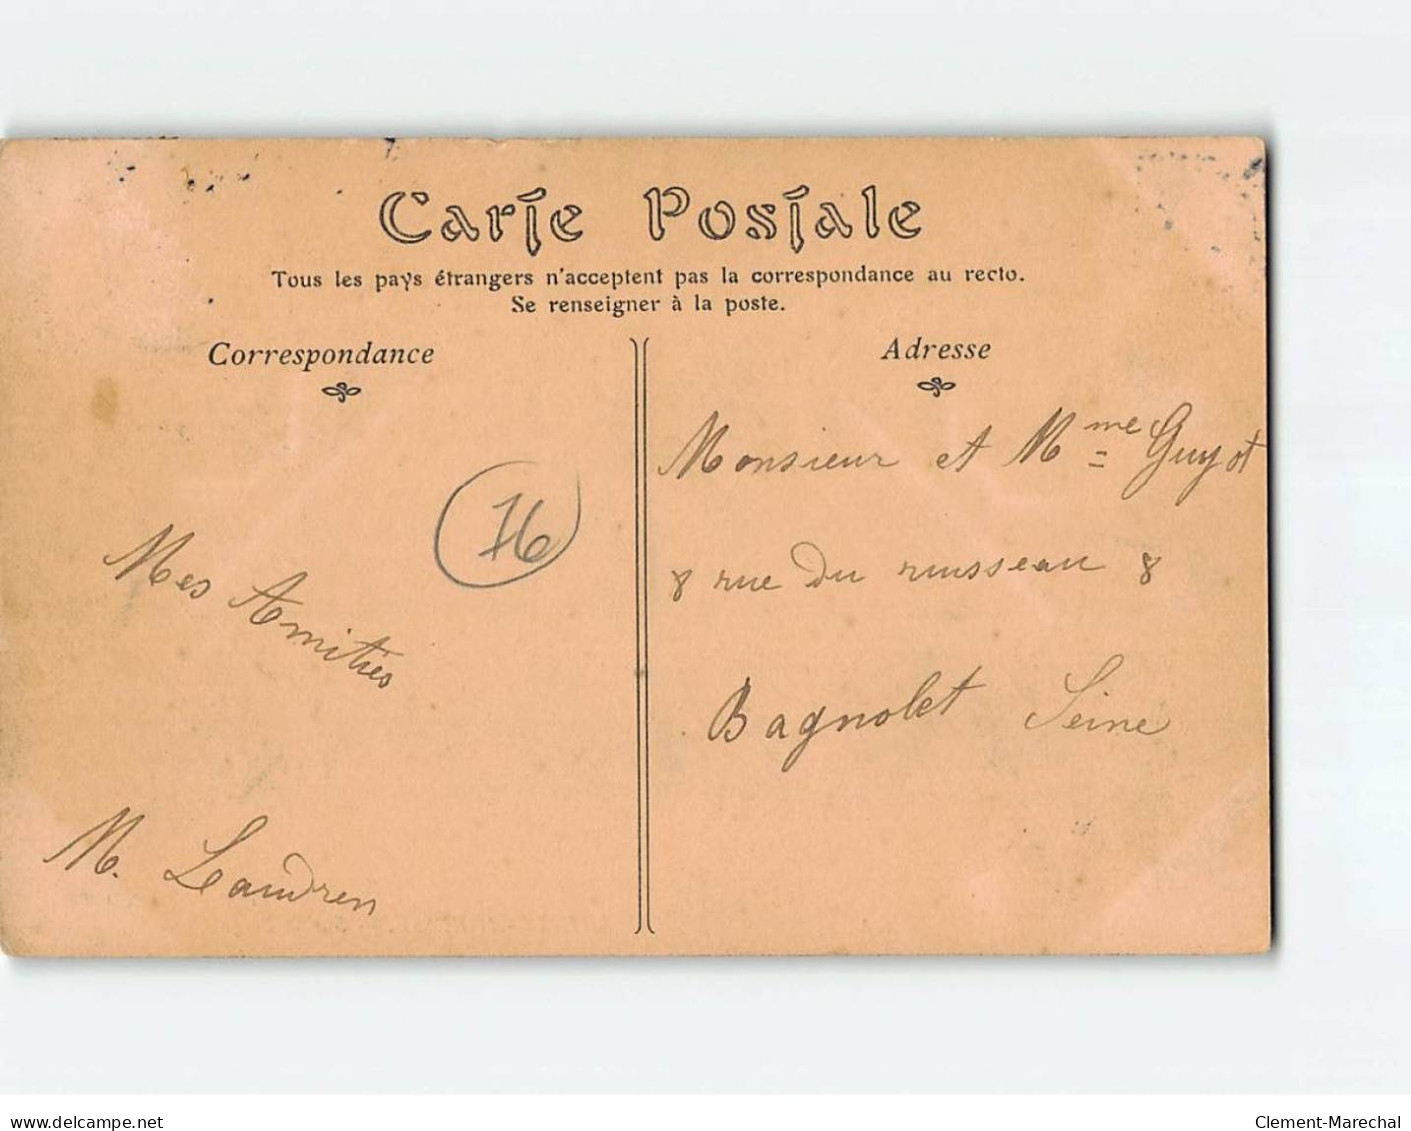 Carte Postale
Tous les pays étrangers n'acceptent pas la correspondance au recto.
Se renseigner à la poste.
Correspondance
Adresse
76
Mes Amitiés
M. Landren
Monsieur et Mme Guyot
8 rue du ruisseau 8
Bagnolet Seine
www.delcampe.net
Clement-Marechal